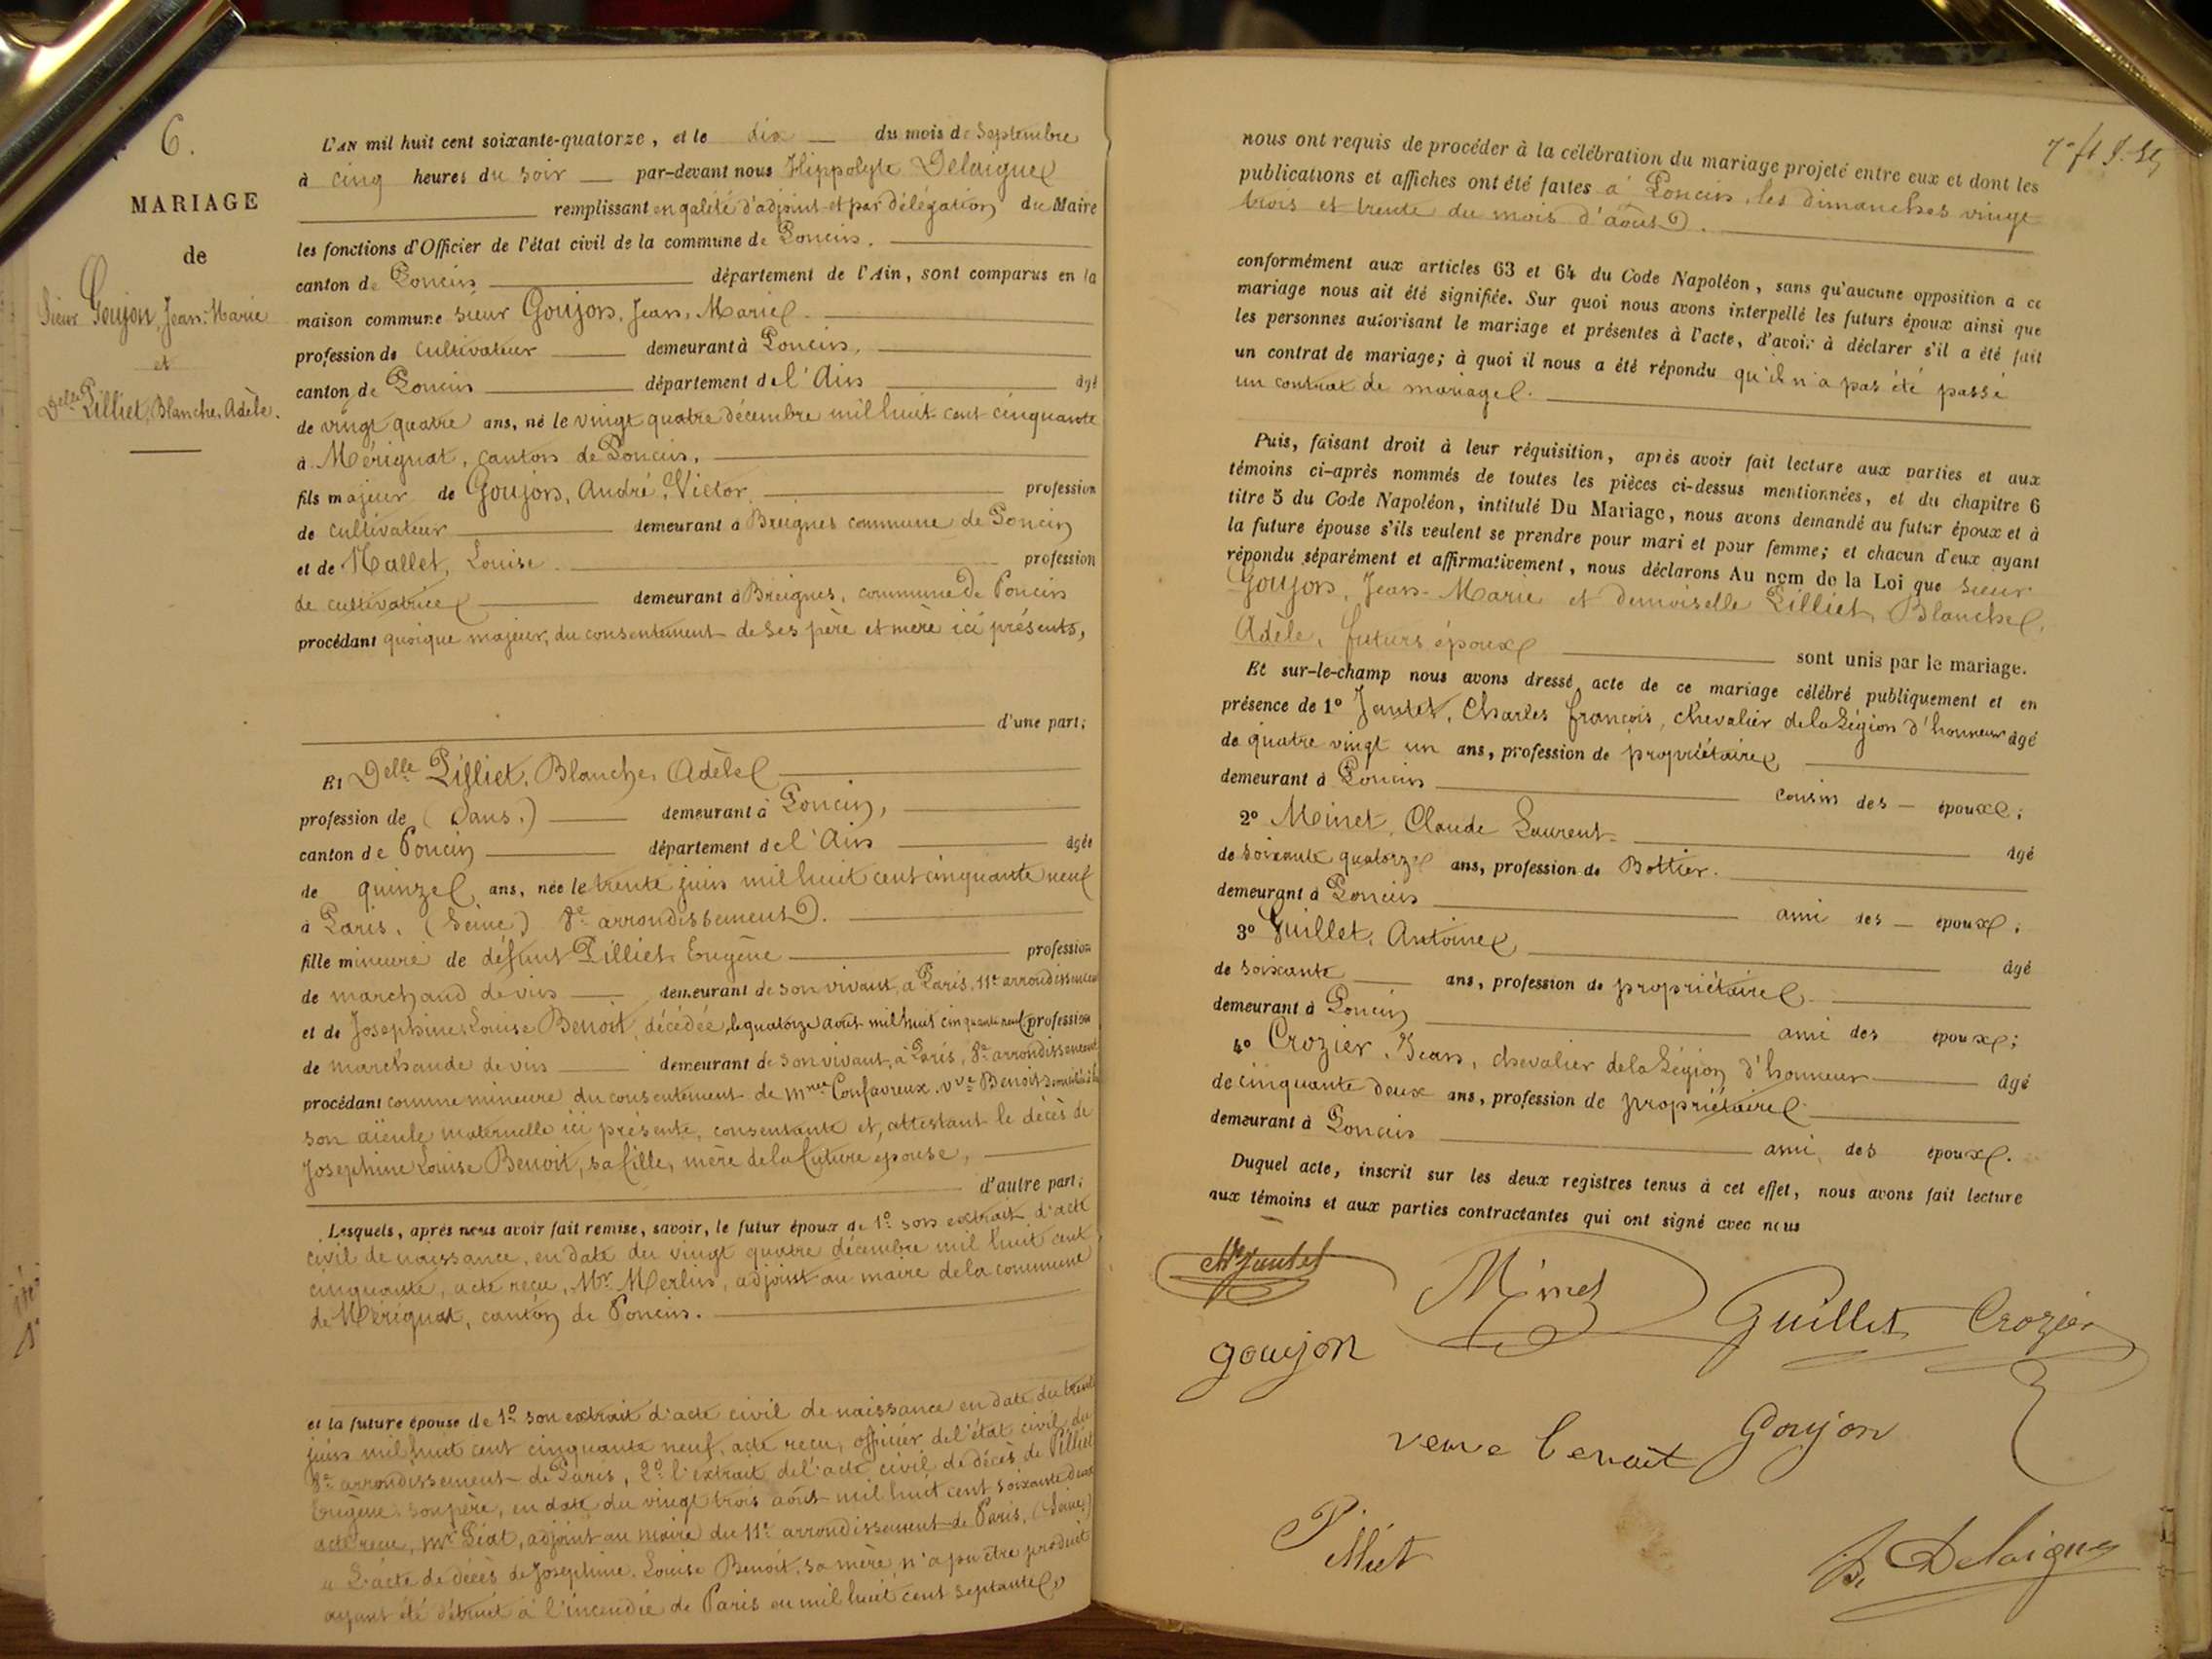 6.
MARIAGE
de
Sieur Goujon, Jean-Marie
et
Delle Pilliet, Blanche, Adèle.
L'AN mil huit cent soixante-quatorze, et le dix du mois de Septembre
à cinq heures du soir par-devant nous Hippolyte Delaigue
remplissant en qalité d'adjoint et par délégation du Maire
les fonctions d'Officier de l'état civil de la commune de Poncin.
canton de Poncin département de l'Ain, sont comparus en la
maison commune sieur Goujon, Jean, Marie.
profession de Cultivateur demeurant à Poncin,
canton de Poncin département de l'Ain âgé
de vingt quatre ans, né le vingt quatre décembre mil huit cent cinquante
à Mérignat, canton de Poncin,
fils majeur de Goujon, André, Victor, profession
de cultivateur demeurant à Breignes commune de Poncin
et de Mallet, Louise. profession
de cultivatrice demeurant à Breignes, commune de Poncin
procédant quoique majeur, du consentement de ses père et mère ici présents,
d'une part;
Et Delle Pilliet, Blanche, Adèle
profession de (Sans.) demeurant à Poncin,
canton de Poncin département de l'Ain âgée
de quinze ans, née le trente juin mil huit cent cinquante neuf
à Paris, (Seine) 8e arrondissement.
fille mineure de défunt Pilliet Eugène profession
de marchand de vin demeurant de son vivant, à Paris, 11e arrondissement
et de Josephine Louise Benoit, décédée, le quatorze août mil huit cinquante neuf profession
de marchande de vin demeurant de son vivant, à Paris, 8e arrondissement
procédant comme mineure du consentement de Mme Confavreux, vve Benoit
son aïeule maternelle ici présente, consentante et, attestant le décès de
Josephine Louise Benoit, sa fille, mère de la future épouse,
d'autre part;
Lesquels, après nous avoir fait remise, savoir, le futur époux de 1o son extrait d'acte
civil de naissance, en date du vingt quatre décembre mil huit cent
cinquante, acte reçu, Mr Merlin, adjoint au maire de la commune
de Mérignat, canton de Poncin.
et la future épouse de 1o son extrait d'acte civil de naissance en date du trente
juin mil huit cent cinquante neuf, acte reçu, officier de l'état civil du
8e arrondissement de Paris, 2o l'extrait de l'acte civil de décès de Pilliet
Eugène, son père, en date du vingt trois août mil huit cent soixante deux
acte reçu, Mr Piat, adjoint au maire du 11e arrondissement de Paris, (Seine)
" L'acte de décès de Josephine, Louise Benoit, sa mère, n'a pu être produit
ayant été détruit à l'incendie de Paris en mil huit cent septante,
nous ont requis de procéder à la célébration du mariage projeté entre eux et dont les
publications et affiches ont été faites à Poncin, les dimanches vingt
trois et trente du mois d'août.
conformément aux articles 63 et 64 du Code Napoléon, sans qu'aucune opposition à ce
mariage nous ait été signifiée. Sur quoi nous avons interpellé les futurs époux ainsi que
les personnes autorisant le mariage et présentes à l'acte, d'avoir à déclarer s'il a été fait
un contrat de mariage; à quoi il nous a été répondu qu'il n'a pas été passé
un contrat de mariage.
Puis, faisant droit à leur réquisition, après avoir fait lecture aux parties et aux
témoins ci-après nommés de toutes les pièces ci-dessus mentionnées, et du chapitre 6
titre 5 du Code Napoléon, intitulé Du Mariage, nous avons demandé au futur époux et à
la future épouse s'ils veulent se prendre pour mari et pour femme; et chacun d'eux ayant
répondu séparément et affirmativement, nous déclarons Au nom de la Loi que Sieur
Goujon, Jean-Marie et demoiselle Pilliet, Blanche,
Adèle, futurs époux sont unis par le mariage.
Et sur-le-champ nous avons dressé acte de ce mariage célébré publiquement et en
présence de 1o Jantet, Charles François, chevalier de la Légion d'honneur âgé
de quatre vingt un ans, profession de propriétaire
demeurant à Poncin cousin des époux;
2o Moinet, Claude Laurent âgé
de soixante quatorze ans, profession de Bottier.
demeurant à Poncin ami des époux;
3o Guillet, Antoine âgé
de soixante ans, profession de propriétaire.
demeurant à Poncin ami des époux;
4o Crozier, Jean, chevalier de la Légion d'honneur âgé
de cinquante deux ans, profession de propriétaire
demeurant à Poncin ami des époux.
Duquel acte, inscrit sur les deux registres tenus à cet effet, nous avons fait lecture
aux témoins et aux parties contractantes qui ont signé avec nous
Jantet
Minet
Guillet
Crozier
goujon
veuve benoit
Goujon
Pilliet
Delaigue